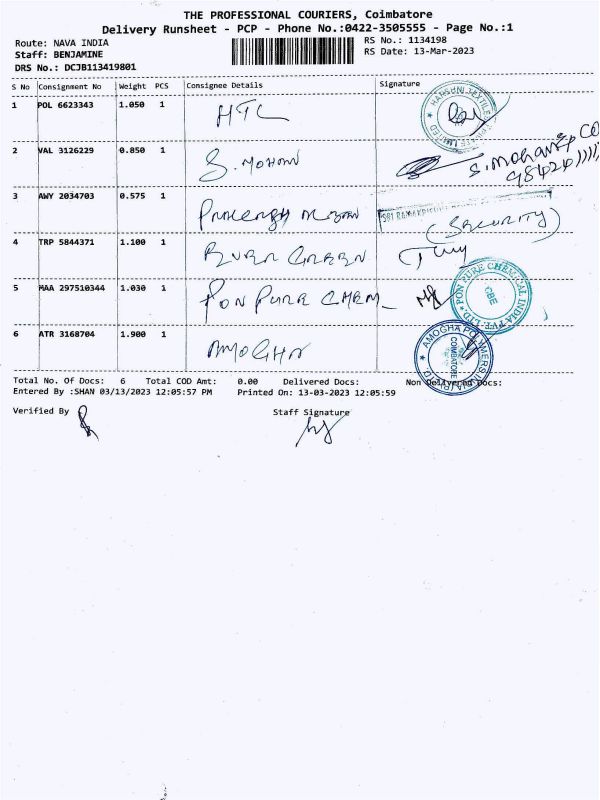 THE PROFESSIONAL COURIERS, Coimbatore
Delivery Runsheet - PCP - Phone No.:0422-3505555 - Page No.:1
Route: NAVA INDIA RS No.: 1134198
Staff: BENJAMINE RS Date: 13-Mar-2023
DRS No.: DCJB113419801
S No Consignment No Weight PCS Consignee Details Signature
1 POL 6623343 1.050 1 HTL
2 VAL 3126229 0.850 1 S. MOHAN S. MOHAN
3 AWY 2034703 0.575 1 (SECURITY)
4 TRP 5844371 1.100 1 GREEN
5 MAA 297510344 1.030 1 PON PURE CHEM PON PURE CHEMICAL INDIA PVT. LTD CBE
6 ATR 3168704 1.900 1 AMOGHA AMOGHA POLYMERS INDIA (P) LTD. COIMBATORE
Total No. Of Docs: 6 Total COD Amt: 0.00 Delivered Docs: Non Delivered Docs:
Entered By :SHAN 03/13/2023 12:05:57 PM Printed On: 13-03-2023 12:05:59
Verified By Staff Signature